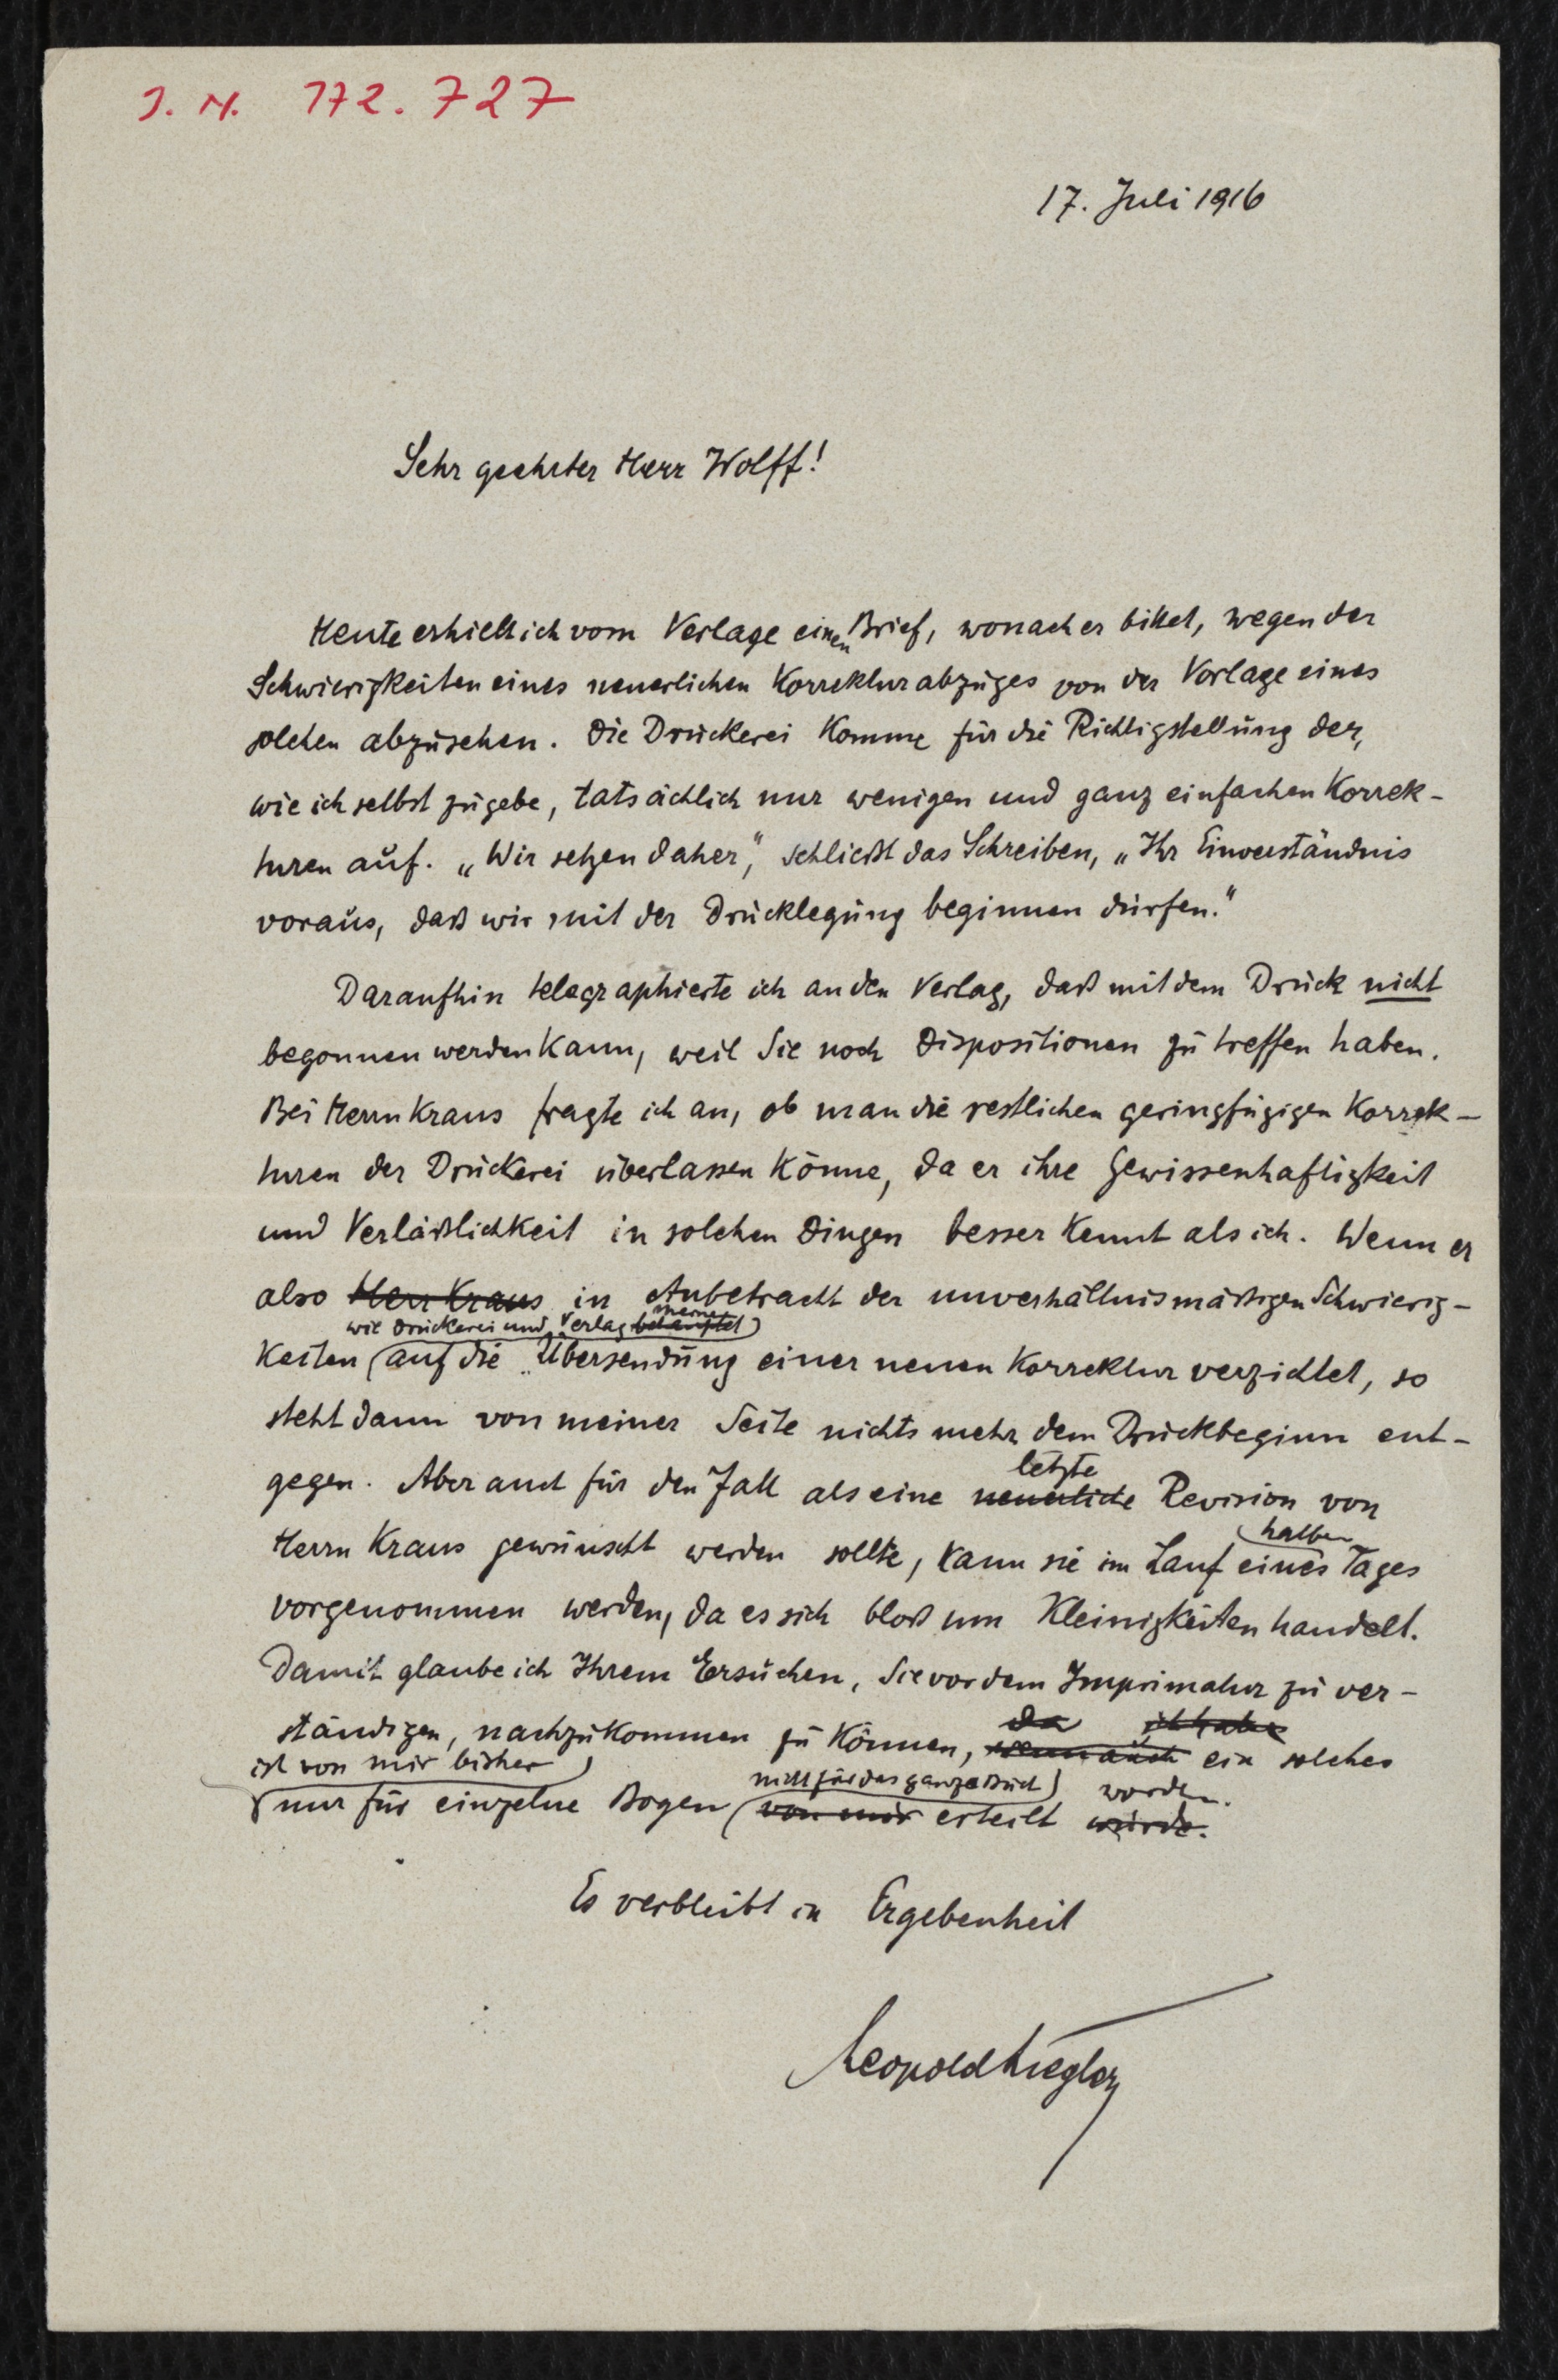 J. N. 172.727
17. Juli 1916
Sehr geehrter Herr Wolff!
Heute erhielt ich vom Verlage einen Brief, wonach er bittet, wegen der
Schwierigkeiten eines neuerlichen Korrekturabzuges von der Vorlage eines
solchen abzusehen. Die Druckerei komme für die Richtigstellung der,
wie ich selbst zugebe, tatsächlich nur wenigen und ganz einfachen Korrek-
turen auf. „Wir setzen daher", schließt das Schreiben, „Ihr Einverständnis
voraus, daß wir mit der Drucklegung beginnen dürfen."
Daraufhin telegraphierte ich an den Verlag, daß mit dem Druck nicht
begonnen werden kann, weil Sie noch Dispositionen zu treffen haben.
Bei Herrn Kraus fragte ich an, ob man die restlichen geringfügigen Korrek-
turen der Druckerei überlassen könne, da er ihre Gewissenhaftigkeit
und Verläßlichkeit in solchen Dingen besser kennt als ich. Wenn er
also Herr Kraus in Anbetracht der unverhältnismäßigen Schwierig-
wie Druckerei und Verlag behauptet meinen
keiten auf die Übersendung einer neuen Korrektur verzichtet, so
steht dann von meiner Seite nichts mehr dem Druckbeginn ent-
letzte
gegen. Aber auch für den Fall als eine neuerliche Revision von
halben
Herrn Kraus gewünscht werden sollte, kann sie im Lauf eines Tages
vorgenommen werden, da es sich bloß um Kleinigkeiten handelt.
Damit glaube ich Ihrem Ersuchen, Sie vor dem Imprimatur zu ver-
da ich habe
ständigen, nachzukommen zu können, wenn auch ein solches
ist von mir bisher
nicht für das ganze Buch worden.
nur für einzelne Bogen von mir erteilt wurde.
Es verbleibt in Ergebenheit
Leopold Liegler